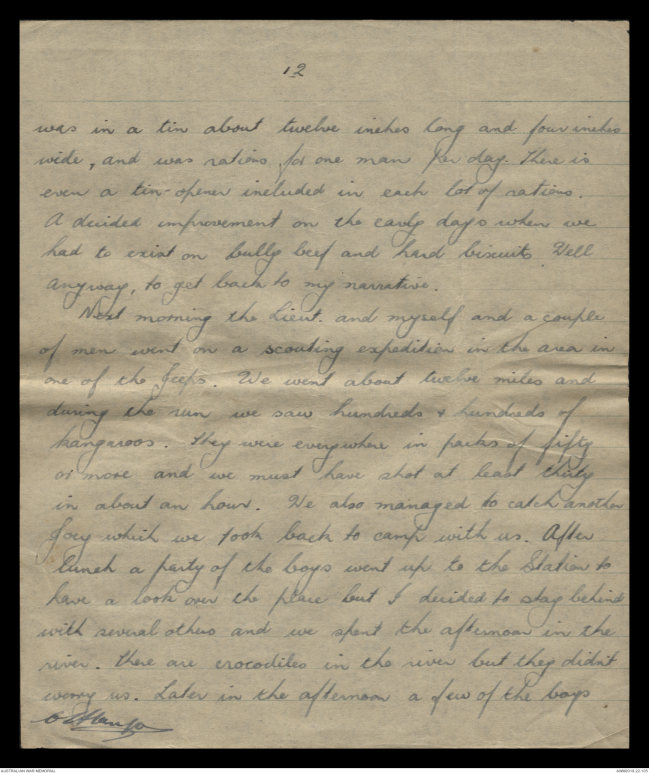 12
was in a tin about twelve inches long and four inches
wide, and was rations for one man per day. There is
even a tin-opener included in each lot of rations.
A decided improvement on the early days when we
had to exist on bully beef and hard biscuits. Well
anyway, to get back to my narrative.
Next morning the Lieut. and myself and a couple
of men went on a scouting expedition in the area in
one of the Jeeps. We went about twelve miles and
during the run we saw hundreds & hundreds of
kangaroos. They were everywhere in packs of fifty
or more and we must have shot at least thirty
in about an hour. We also managed to catch another
Joey which we took back to camp with us. After
lunch a party of the boys went up to the Station to
have a look over the place but I decided to stay behind
with several others and we spent the afternoon in the
river. There are crocodiles in the river but they didn't
worry us. Later in the afternoon a few of the boys
AUSTRALIAN WAR MEMORIAL